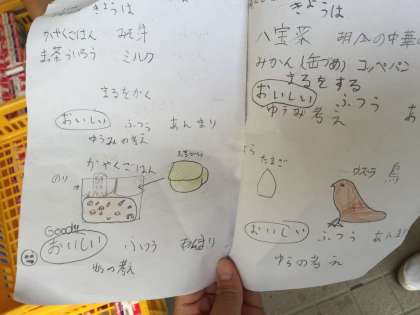 きょうは
かやくごはん みそ汁
お茶ういろう ミルク
まるをかく
おいしい ふつう あんまり
ゆうみの考え
かやくごはん
のり
Good!!
おいしい ふつう あんまり
ゆうの考え
きょうは
八宝菜 胡瓜の中華
みかん(缶づめ) コッペパン
まるをする
おいしい ふつう あ
ゆうみ考え
たまご
ウズラ 鳥
おいしい ふつう あんまり
ゆうの考え